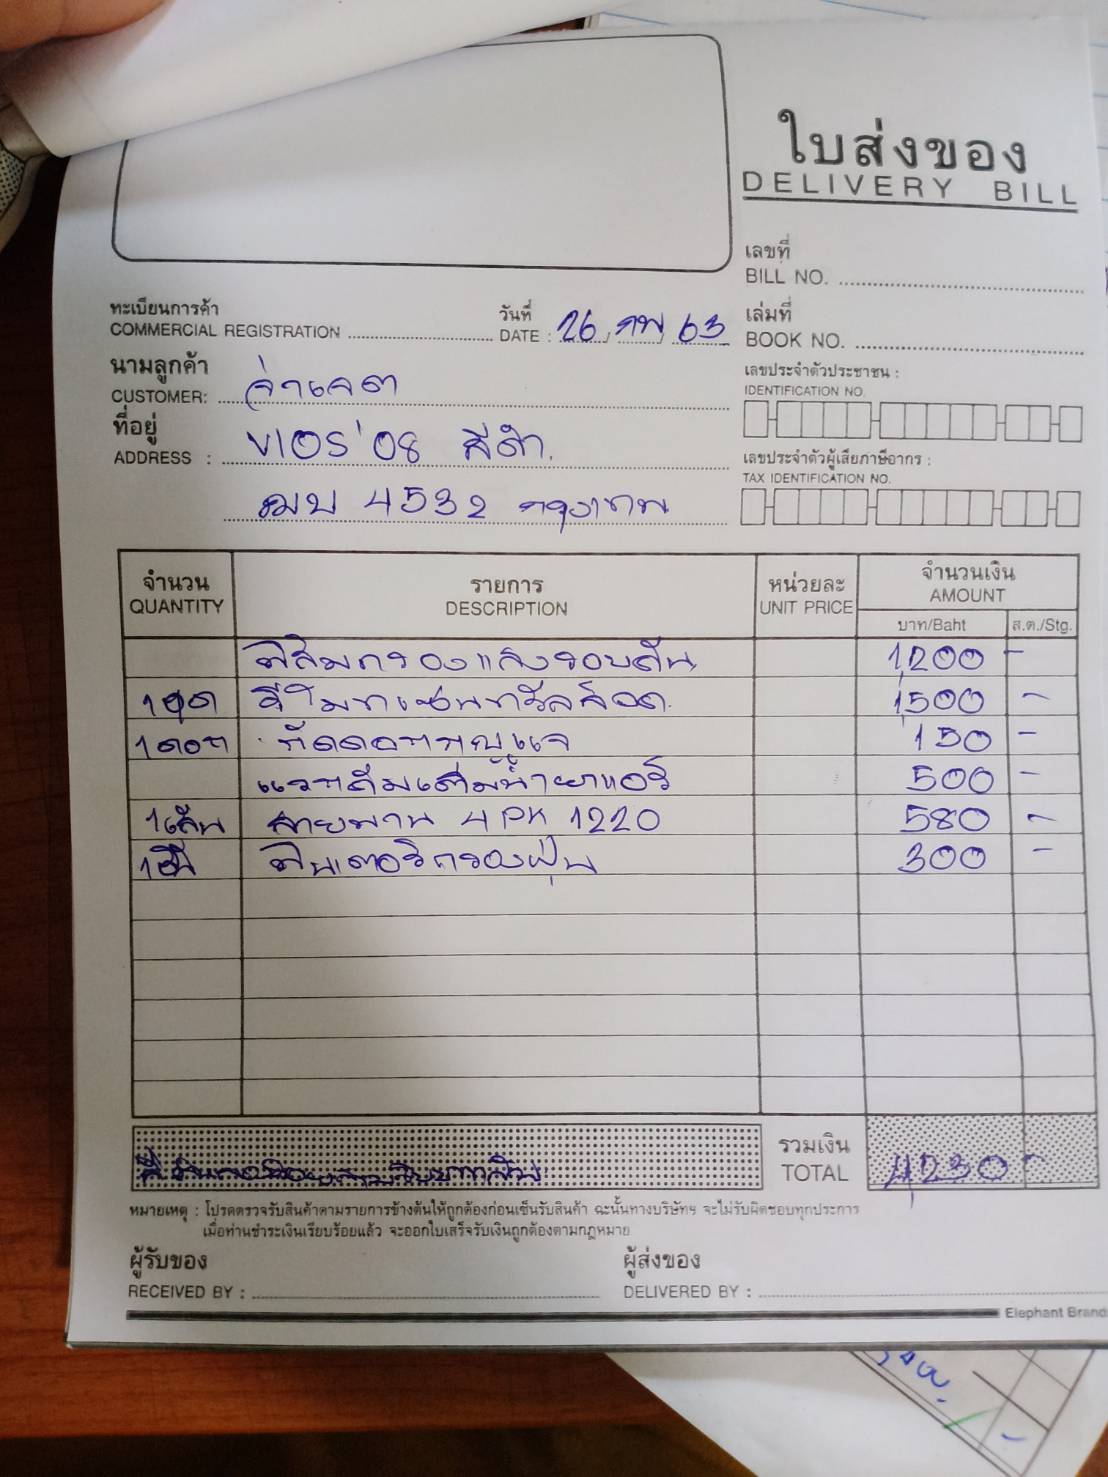 ใบส่งของ
DELIVERY BILL
เลขที่
BILL NO.
ทะเบียนการค้า
COMMERCIAL REGISTRATION
วันที่
DATE : 26 กพ 63
เล่มที่
BOOK NO.
นามลูกค้า
CUSTOMER: จ่าเจต
ที่อยู่
ADDRESS : VIOS'08 สีดำ.
ฌบ 4532 กรุงเทพ
เลขประจำตัวประชาชน :
IDENTIFICATION NO.
เลขประจำตัวผู้เสียภาษีอากร :
TAX IDENTIFICATION NO.
จำนวน รายการ หน่วยละ จำนวนเงิน
QUANTITY DESCRIPTION UNIT PRICE AMOUNT
บาท/Baht ส.ต./Stg.
ฟิล์มกรองแสงรอบคัน 1,200 -
1ชุด รีโมทเซนทรัลล็อค 1,500 -
1ดอก กัดดอกกุญแจ 150 -
แวคคั่มเติมน้ำยาแอร์ 500 -
1เส้น สายพาน 4PK 1220 580 -
1อัน ฟิลเตอร์กรองฝุ่น 300 -
รวมเงิน
TOTAL 4,230 -
หมายเหตุ : โปรดตรวจรับสินค้าตามรายการข้างต้นให้ถูกต้องก่อนเซ็นรับสินค้า ฉะนั้นทางบริษัทฯ จะไม่รับผิดชอบทุกประการ
เมื่อท่านชำระเงินเรียบร้อยแล้ว จะออกใบเสร็จรับเงินถูกต้องตามกฎหมาย
ผู้รับของ
RECEIVED BY :
ผู้ส่งของ
DELIVERED BY :
Elephant Brand